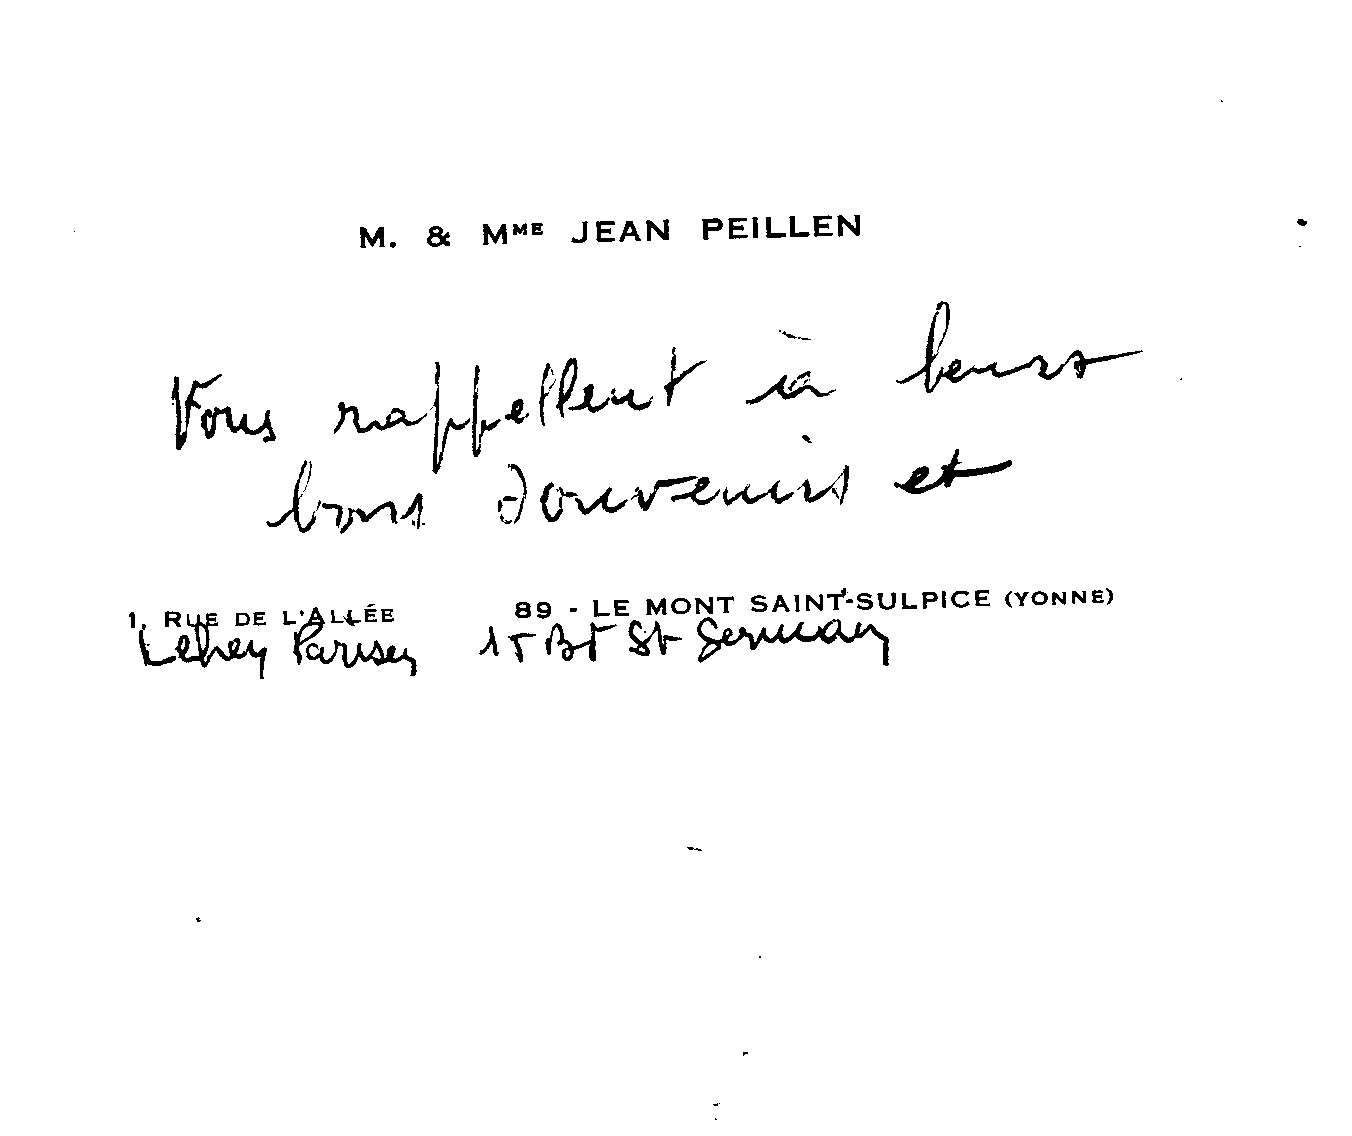 M. & MME JEAN PEILLEN
Vous rappellent à leurs
bons souvenirs et
1, RUE DE L'ALLÉE 89 - LE MONT SAINT-SULPICE (YONNE)
15 Bd St Germain